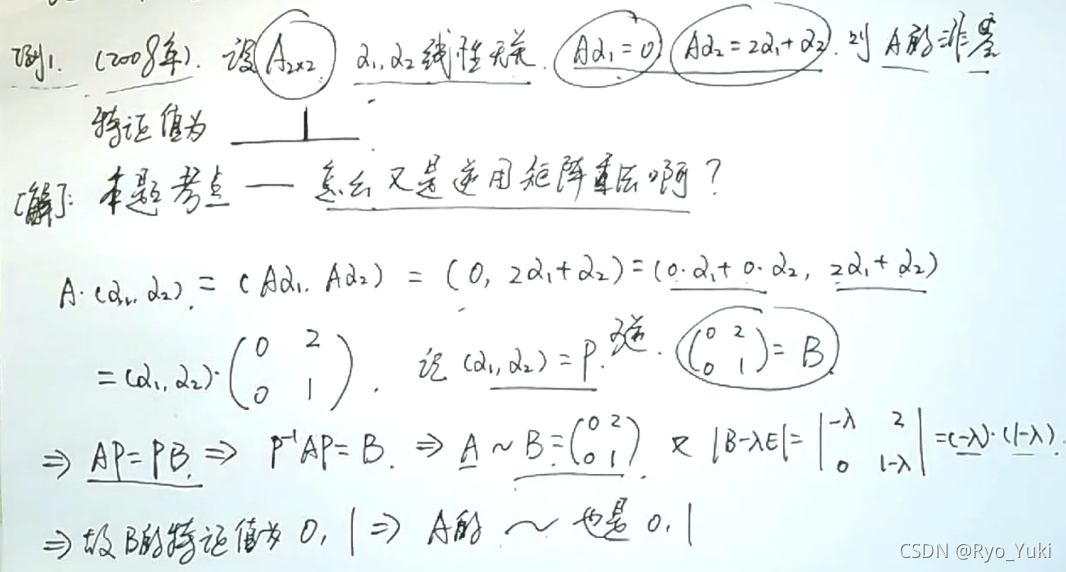 例1. (2008年). 设A₂ₓ₂ α₁,α₂线性无关. Aα₁=0 Aα₂=2α₁+α₂. 则 A的非零
特征值为 1
[解]: 本题考点 — 怎么又是逆用矩阵乘法啊?
A·(α₁, α₂) = (Aα₁, Aα₂) = (0, 2α₁+α₂) = (0·α₁+0·α₂, 2α₁+α₂)
= (α₁, α₂)·(0 2; 0 1). 记 (α₁,α₂)=P. 可逆. (0 2; 0 1) = B
⇒ AP=PB ⇒ P⁻¹AP=B. ⇒ A~B=(0 2; 0 1) 又 |B-λE|=|-λ 2; 0 1-λ|=(-λ)·(1-λ).
⇒ 故B的特征值为 0, 1 ⇒ A的 ~ 也是 0, 1
CSDN @Ryo_Yuki